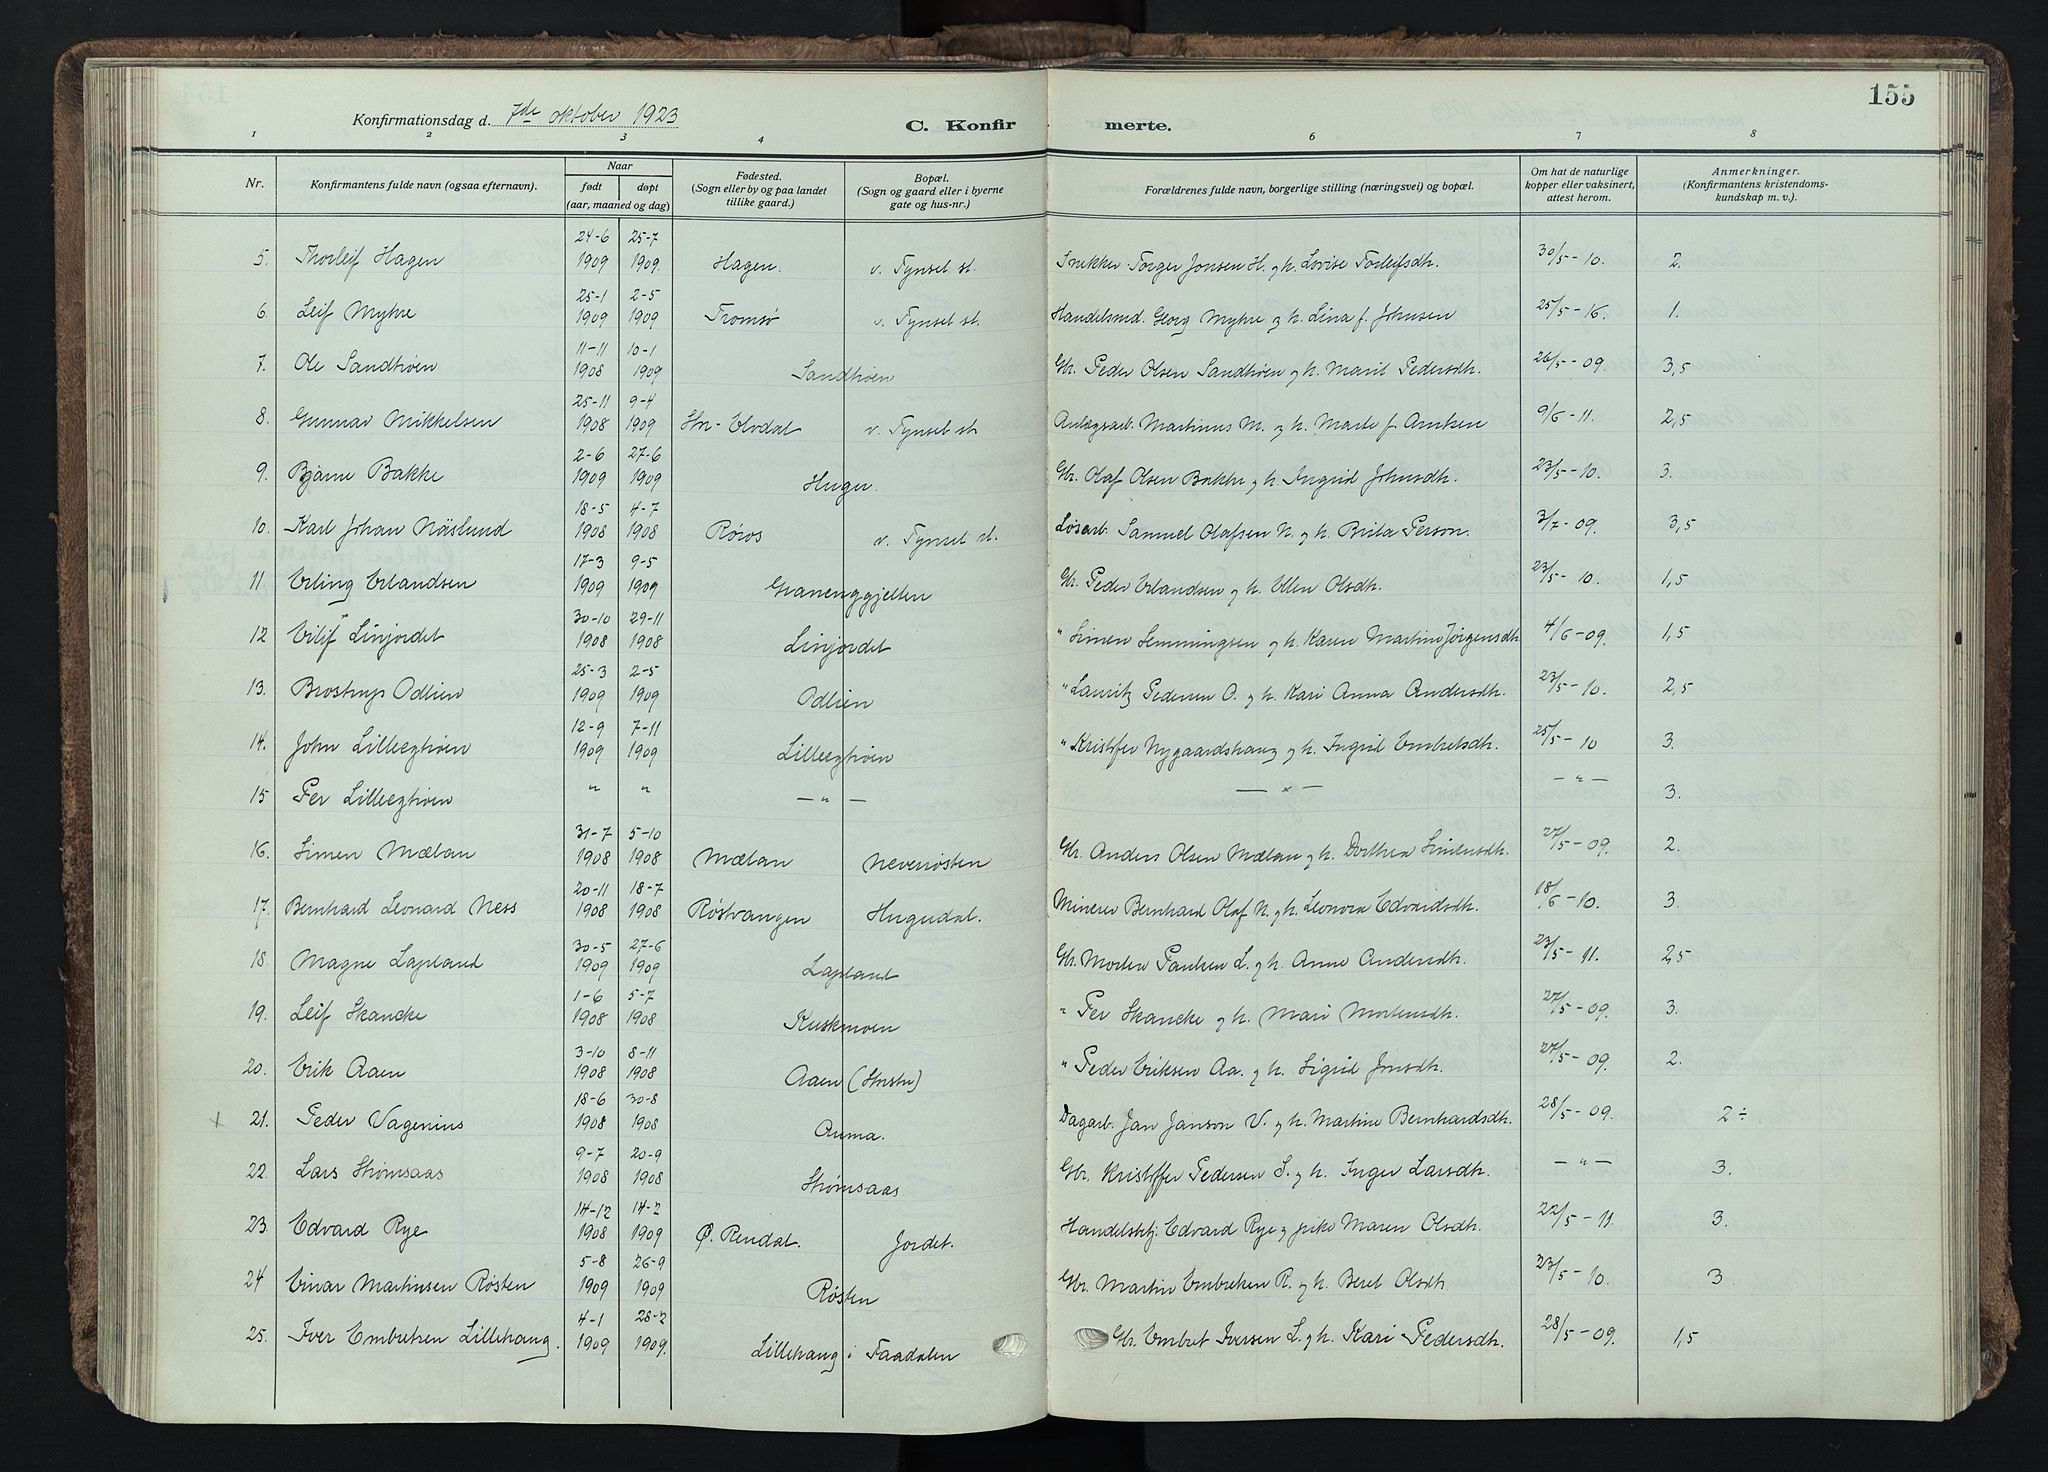 155
Konfirmationsdag d. 7de oktober 1923 C. Konfirmerte.
1 2 3 4 6 7 8
Nr. Konfirmantens fulde navn (ogsaa efternavn). Naar født døpt (aar, maaned og dag) Fødested. (Sogn eller by og paa landet tillike gaard.) Bopæl. (Sogn og gaard eller i byerne gate og hus-nr.) Forældrenes fulde navn, borgerlige stilling (næringsvei) og bopæl. Om hat de naturlige kopper eller vaksinert, attest herom. Anmerkninger. (Konfirmantens kristendoms-kundskap m. v.).
5. Thorleif Hagen 24-6 1909 25-7 1909. Hagen. v. Tynset st. Snikker Torger Jonsen H. og h. Lovise Torleifsdh. 30/5-10. 2.
6. Leif Myhre 25-1 1909 2-5 1909 Tromsø v. Tynset st. Handelsmd. Georg Myhre og h. Lina f. Johnsen 25/5-16. 1.
7. Ole Sandtrøen 11-11 1908 10-1 1909 Sandtrøen Gbr. Peder Olsen Sandtrøen og h. Marit Pedersdh. 26/5-09. 3,5
8. Gunnar Mikkelsen 25-11 1908 9-4 1909 Str-Elvdal v. Tynset st. Anlægsarb. Martinus M. og h. Marte f. 9/6-11. 2,5
9. Bjarne Bakke 2-6 1909 27-6 1909 Gbr. Olaf Olsen Bakke og h. Ingrid Johnsdh. 23/5-10. 3.
10. Karl Johan Näslund 18-5 1908 4-7 1908 Røros v. Tynset st. Løsarb. Samuel Olafsen N. og h. Brita Person. 3/7-09. 3,5
11. Erling Erlandsen 17-3 1909 9-5 1909 Gbr. Peder Erlandsen og h. Ellen Olsdh. 23/5-10. 1,5
12 Eilif Linjordet 30-10 1908 29-11 1908 Linjordet " Simen Semmingsen og h. Karen Martine Jørgensdh. 4/6-09. 1,5
13. Brostrup Odlien 25-3 1909 2-5 1909 Odlien " Lauritz Pedersen O. og h. Kari Anna Andersdh. 23/5-10. 2,5
14. John Lilleegtrøen 12-9 1909 7-11 1909 Lilleegtrøen " Kristoffer Nygaardshaug og h. Ingrid Embretsdh. 25/5-10 3.
15 Per Lilleegtrøen " " — " — — " — — " — 3.
16. Simen Mælan 31-7 1908 5-10 1908 Mælan Neverrøsten Gbr. Anders Olsen Mælan og h. Dorthea Simensdh. 27/5-09. 2.
17. Bernhard Leonard Ness 20-11 1908 18-7 1908 Røstvangen Hugudal. Minerer Bernhard Olaf N. og h. Leonora Edvardsdh. 18/6-10. 3.
18. Magne Lapland 30-5 1909 27-6 1909 Lapland Gbr. Morten Paulsen L. og h. Anne Andersdh. 23/5-11. 2,5
19. Leif Skancke 1-6 1908 5-7 1908 Kuskmoen " Per Skancke og h. Mari Mortensdh. 27/5-09. 3.
20. Erik Aaen 3-10 1908 8-11 1908 Aaen " Peder Eriksen Aa. og h. Sigrid Jonsdh. 27/5-09. 2.
21. Peder Vagenius 18-6 1908 30-8 1908 Auma. Dagarb. Jan Janson V. og h. Martine Bernhardsdh. 28/5-09. 2÷
22. Lars Strømsaas 9-7 1908 20-9 1908 Strømsaas Gbr. Kristoffer Pedersen S. og h. Inger Larsdh. — " — 3.
23. Edvard Rye 14-12 1908 14-2 1909 Ø. Rendal. Jordet. Handelsbetj. Edvard Rye og pike Maren Olsdh. 22/5-11. 3.
24 Einar Martinsen Røsten 5-8 1909 26-9 1909 Røsten Gbr. Martin Embretsen R. og h. Beret Olsdh. 23/5-10. 3
25. Iver Embretsen Lillehaug. 4-1 1909 28-2 1909. Lillehaug i Faadalen Gbr. Embret Iversen L. og h. Kari Pedersdh. 28/5-09. 1,5